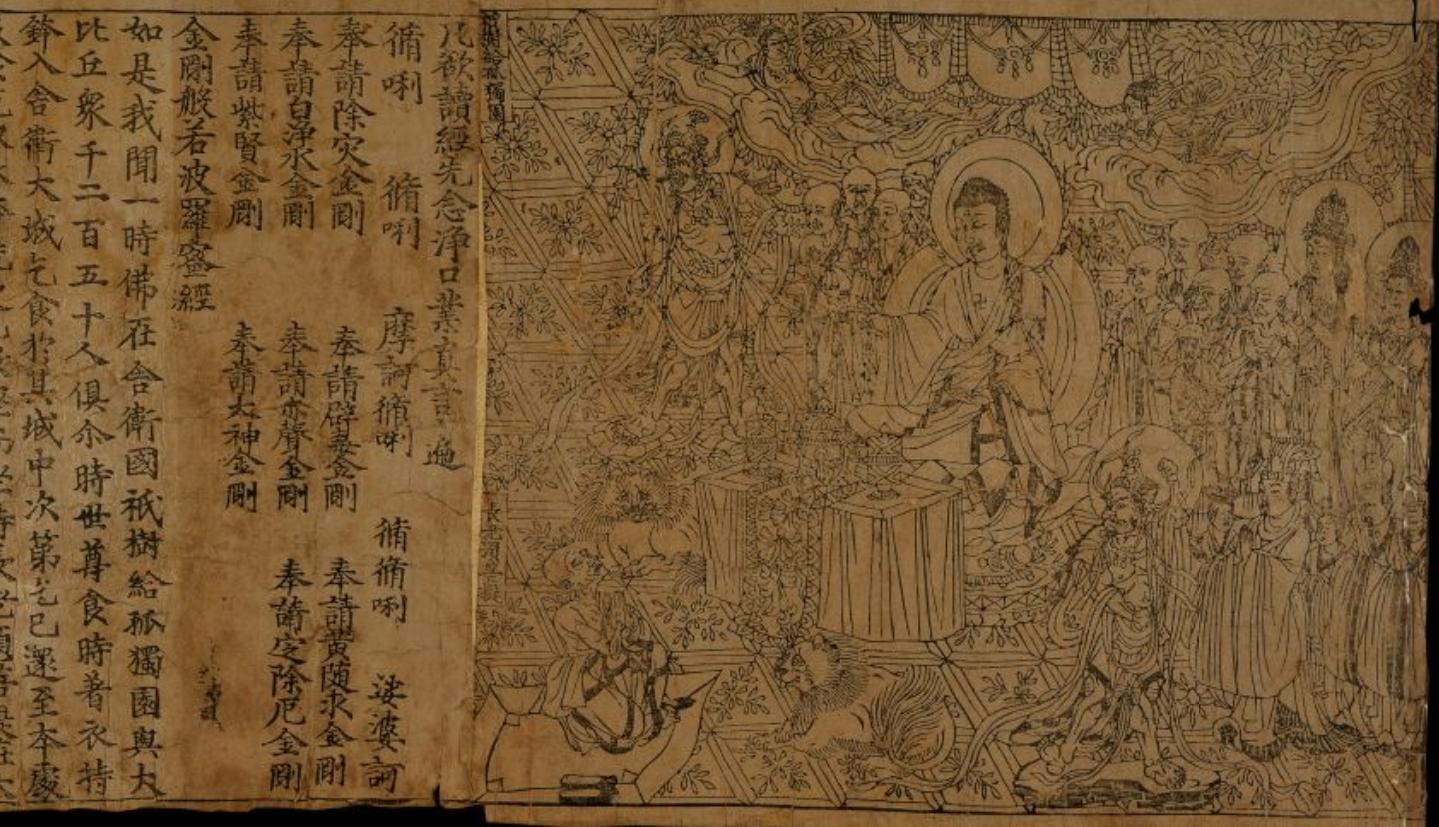 祇樹給孤獨園
凡欲讀經先念淨口業真言一遍
脩唎 脩唎 摩訶脩唎 脩脩唎 娑婆訶
奉請除灾金剛 奉請辟毒金剛 奉請黄随求金剛
奉請白淨水金剛 奉請赤聲金剛 奉請定除厄金剛
奉請紫賢金剛 奉請大神金剛
金剛般若波羅蜜經
如是我聞一時佛在舍衛國祇樹給孤獨園與大
比丘衆千二百五十人俱尒時世尊食時著衣持
鉢入舍衛大城乞食於其城中次第乞已還至本處